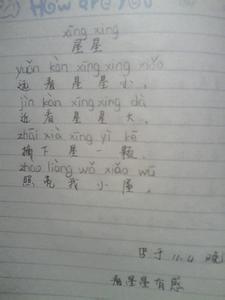 How are you
xīng xing
星星
yuǎn kàn xīng xing xiǎo
远看星星小，
jìn kàn xīng xing dà
近看星星大。
zhāi xià xīng yì kē
摘下星一颗，
zhao liàng wǒ xiǎo wū
照亮我小屋。
写于 11.4 晚
看星星有感